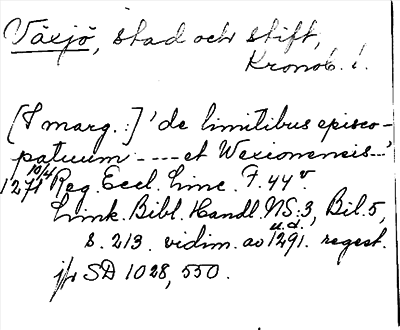 Växjö, stad och stift,
Kronob. l.
[I marg.:] 'de limitibus episco-
patuum ---- et Wexionensis...'
1271 10/4 Reg. Eccl. Linc. F. 44 v.
Link. Bibl. Handl. NS:3, Bil. 5,
s. 213. vidim. av 1291. u.d. regest.
jfr SD 1028, 550.